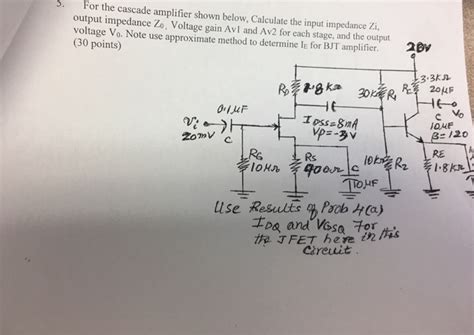 5. For the cascade amplifier shown below, Calculate the input impedance Zi,
output impedance Z0, Voltage gain Av1 and Av2 for each stage, and the output
voltage V0. Note use approximate method to determine IE for BJT amplifier.
(30 points)
20V
RD
30K R1
3.3KΩ
20μF
0.1μF
Vi
20mV
C
IDSS=8mA
VP=-3V
C
Vo
10μF
β=120
RG
10MΩ
RS
C
10μF
10K
R2
RE
1.8K
Use Results of Prob 4(a)
IDQ and VGSQ for
the JFET here in this
circuit.